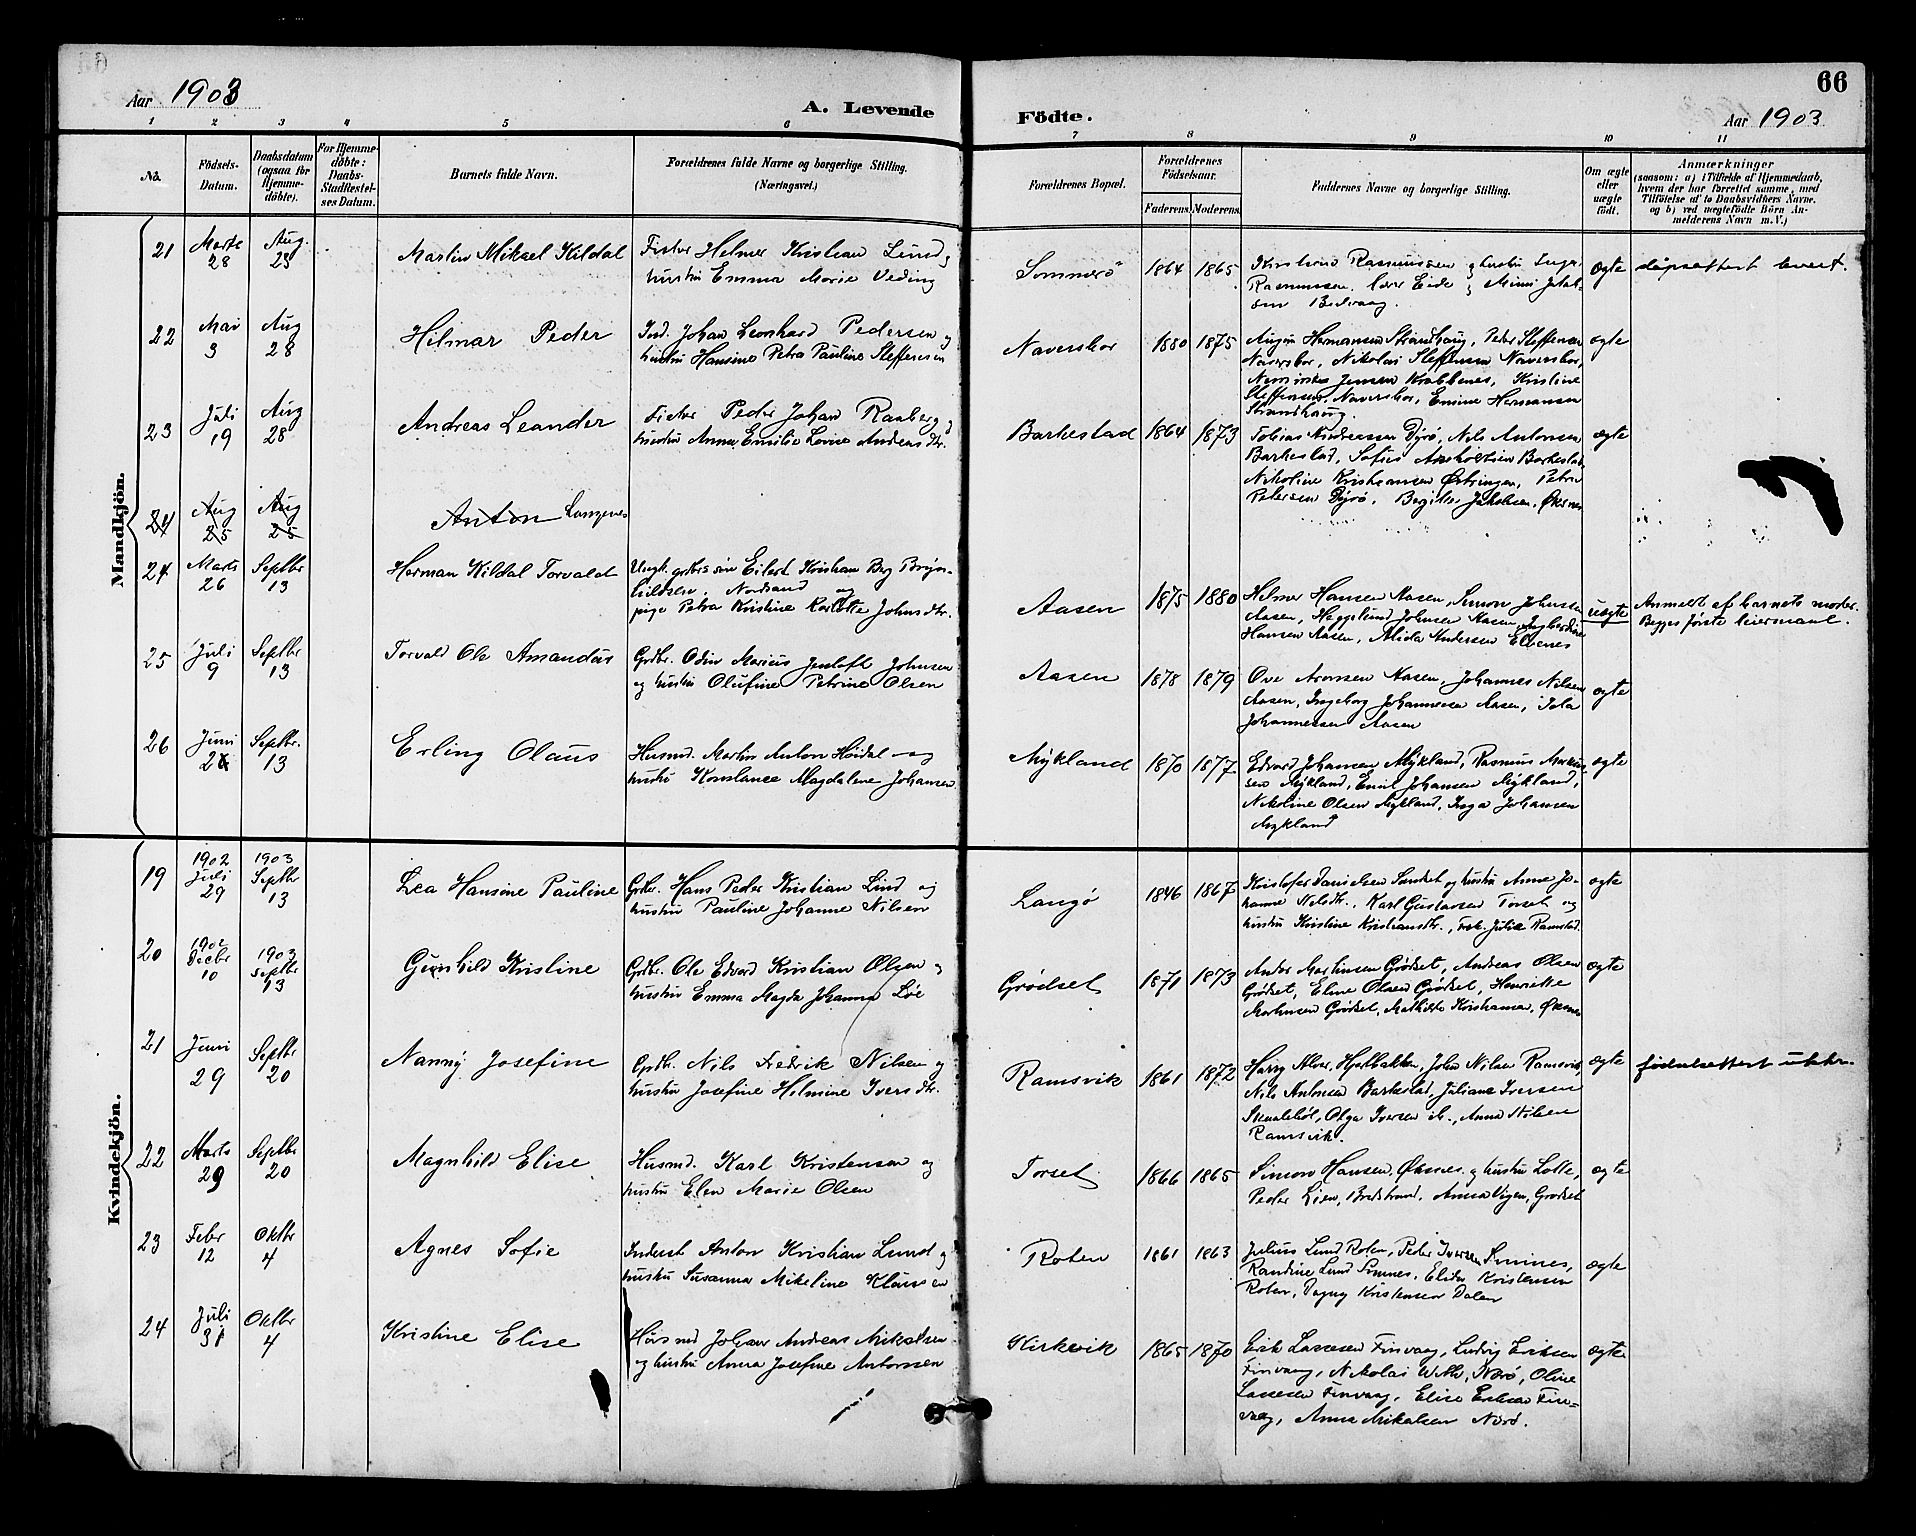 Aar 1903
A. Levende
Födte.
66
Aar 1903
1 2 3 4 5 6 7 8 9 10 11
No.
Födsels-
Datum.
Daabsdatum
(ogsaa for
Hjemme-
döbte).
For Hjemme-
döbte:
Daabs-
Stadfæstel-
ses Datum.
Barnets fulde Navn.
Forældrenes fulde Navne og borgerlige Stilling.
(Næringsvei.)
Forældrenes Bopæl.
Forældrenes
Födselsaar.
Faderens.
Moderens.
Faddernes Navne og borgerlige Stilling.
Om ægte
eller
uægte
født.
Anmærkninger
(saasom: a) i Tilfælde af Hjemmedaab,
hvem der har forrettet samme, med
Tilföielse af to Daabsvidners Navne.
og b) ved uægtefödte Börn An-
melderens Navn m. V.)
Mandkjön.
21 Marts 28 Aug. 23 Martin Mikael Kildal
Fisker Helmer Kristian Lund og
hustru Emma Marie Veding
Sommerö 1864 1865
Kristian Rasmussen og hustru Inga
Rasmussen
ægte
dåpsattest levert.
22 Mai 3 Aug 28 Hilmar Peder
Ind. Johan Leonhard Pedersen og
hustru Hansine Petra Pauline Steffensen
Naverskor 1880 1875
Hermansen Strandhaug, Peder Steffensen
Naverskor, Nikolai Steffensen Naverskor,
Jensen Krabbenes, Kristine
Steffensen Naverskor, Emine Hermansen
Strandhaug.
ægte
23 Juli 19 Aug 28 Andreas Leander
Fisker Peder Johan Raaberg og
hustru Anna Emilie Andreasdtr.
Barkestad 1864 1873
Tobias Andreassen Dyrö, Nils Antonsen
Barkestad, Sofus Barkestad
Nikoline Kristiansen Østringen, Petra
Petersen Dyrö, Jakobsen, Øksnes
ægte
24 Aug 25 Aug 25 Anton Langenes
24 Marts 26 Septbr 13 Herman Kildal Torvald
Ungk. grdbr. sön Eilert Kristian Berg Bryn-
hildsen, Nordsand og
pige Petra Kristine Karlotte Johnsdtr.
Aasen 1875 1880
Helmer Hansen Aasen, Simon Johnsen
Aasen, Hegglund Johnsen Aasen, Ingbordine
Hansen Aasen, Alida Andersen Elvenes
uægte
Anmeldt af barnets moder
Begges första leiermaal.
25 Juli 9 Septbr 13 Torvald Ole Amandus
Grdbr. Odin Marius Jentoft Johnsen
og hustru Olufine Petrine Olsen
Aasen 1878 1879
Ove Aronsen Aasen, Johannes Nilsen
Aasen, Ingeborg Johannesen Aasen,
Johannessen Aasen
ægte
26 Juni Septbr. 13 Erling Olaus
Husmd. Martin Anton Høidal og
hustru Konstance Magdalene Johansen
Mykland 1870 1877
Edvard Johansen Mykland, Rasmus Markus-
sen Mykland, Emil Johansen Mykland,
Nikoline Olsen Mykland, Inga Johansen
Mykland
ægte
Kvindekjön.
19 1902 Juli 29 1903 Septbr 13 Lea Hansine Pauline
Grdbr. Hans Peder Kristian Lind og
hustru Pauline Johanne Nilsen
Langø 1846 1867
Kristofer Danielsen Sandset og hustru Anne Jo-
hanne Nilsdtr., Karl Gustavsen Torset og
hustru Kristine Kristiansdtr., Frk. Julie Ramstad
ægte
20 1902 Decbr 10 1903 Septbr 13 Gunhild Kristine
Grdbr. Ole Edvard Kristian Olsen og
hustru Emma Magda Johanna Löe
Grödset 1871 1873
Andor Martinsen Grödset, Andreas Olsen
Grödset, Eline Olsen Grödset, Henriette
Martinsen Grödset, Mathilde Kristiansen, Øksnes
ægte
21 Juni 29 Septbr 20 Nanny Josefine
Grdbr. Nils Fredrik Nilsen og
hustru Josefine Hilmine Iversdtr.
Ramsvik 1861 1872
Harry Alver, Hjellbakken, John Nilsen Ramsvik,
Nils Antonsen Barkestad, Juliane Iversen
Skaaleböl, Olga Iversen ib., Anna Nilsen
Ramsvik.
ægte
födselsattest utstr.
22 Marts 29 Septbr 20 Magnhild Elise
Husmd. Karl Kristensen og
hustru Elen Marie Olsen
Torset 1866 1865
Simon Hansen, Øksnes og hustru Lotte,
Peder Lien, Bredstrand, Anna Vigen, Grödset
ægte
23 Febr 12 Oktbr 4 Agnes Sofie
Inderst Anton Kristian Lund og
hustru Susanna Mikeline Klausen
Roten 1861 1863
Julius Lund Roten, Peder Iversen Sminnes,
Randine Lund Sminnes, Elida Kristensen
Roten, Dagny Kristensen Dalen
ægte
24 Juli 31 Oktbr 4 Kristine Elise
Husmd Johan Andreas Mikalsen
og hustru Anna Josefine Antonsen
Kirkevik 1865 1870
Erik Lassesen Finvaag, Ludvig Eriksen
Finvaag, Nikolai Witt, Nærö, Oline
Lassesen Finvaag, Elise Eriksen Fin-
vaag, Anna Mikalsen Nærö.
ægte